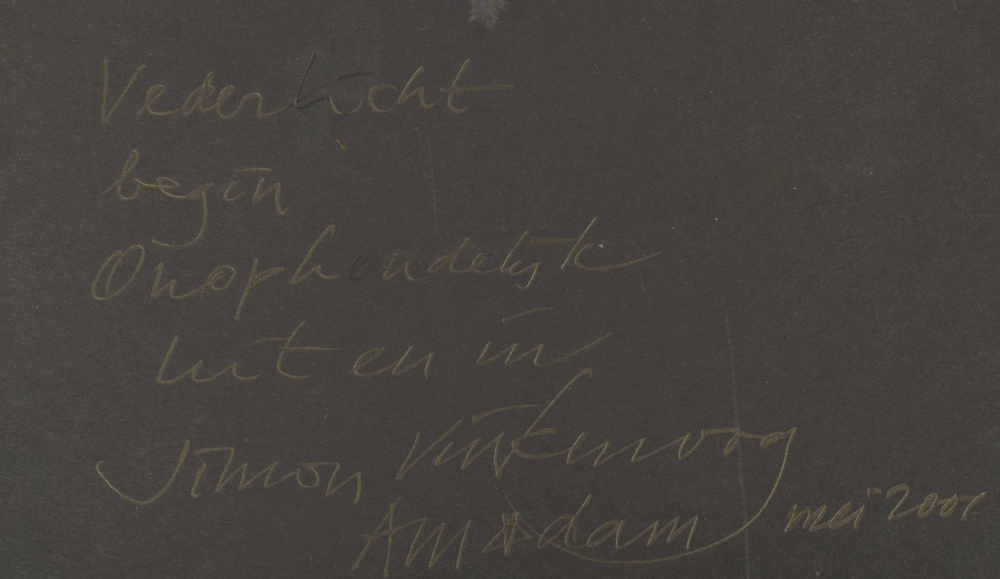 Vederlicht
begin
Onophoudelijk
uit en in
Simon Vinkenoog
Amsdam mei 2001